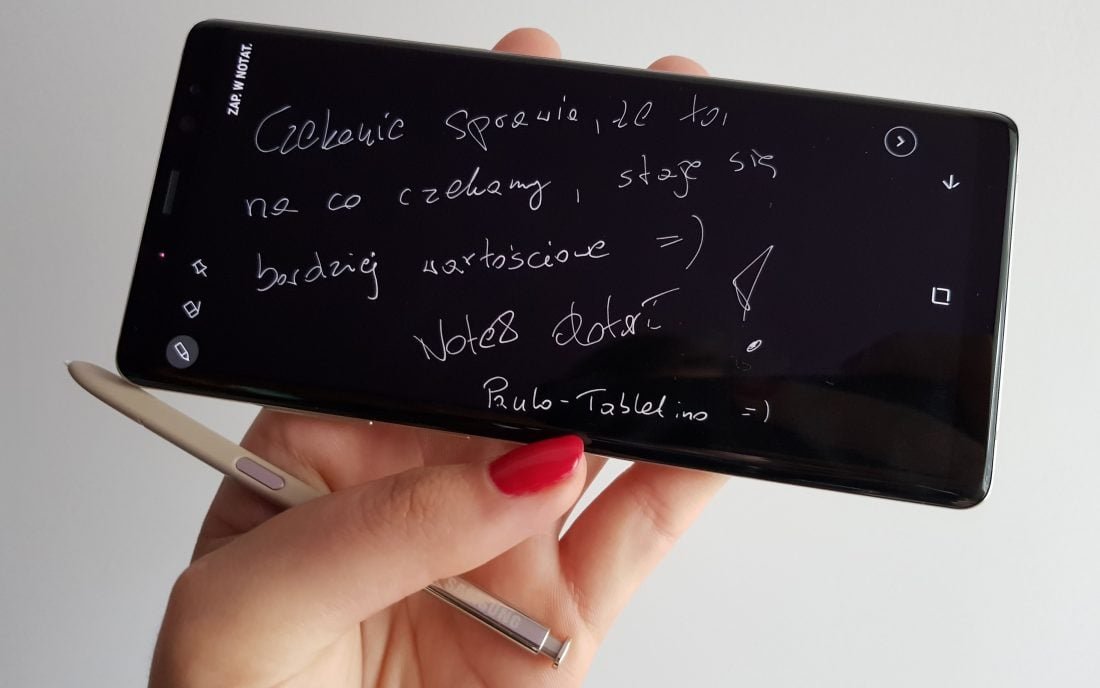 ZAP. W NOTAT.
Czekanie sprawia, że to,
na co czekamy, staje się
bardziej wartościowe =)
Note8 dotarł !
Paula-Tabletino =)
SAMSUNG